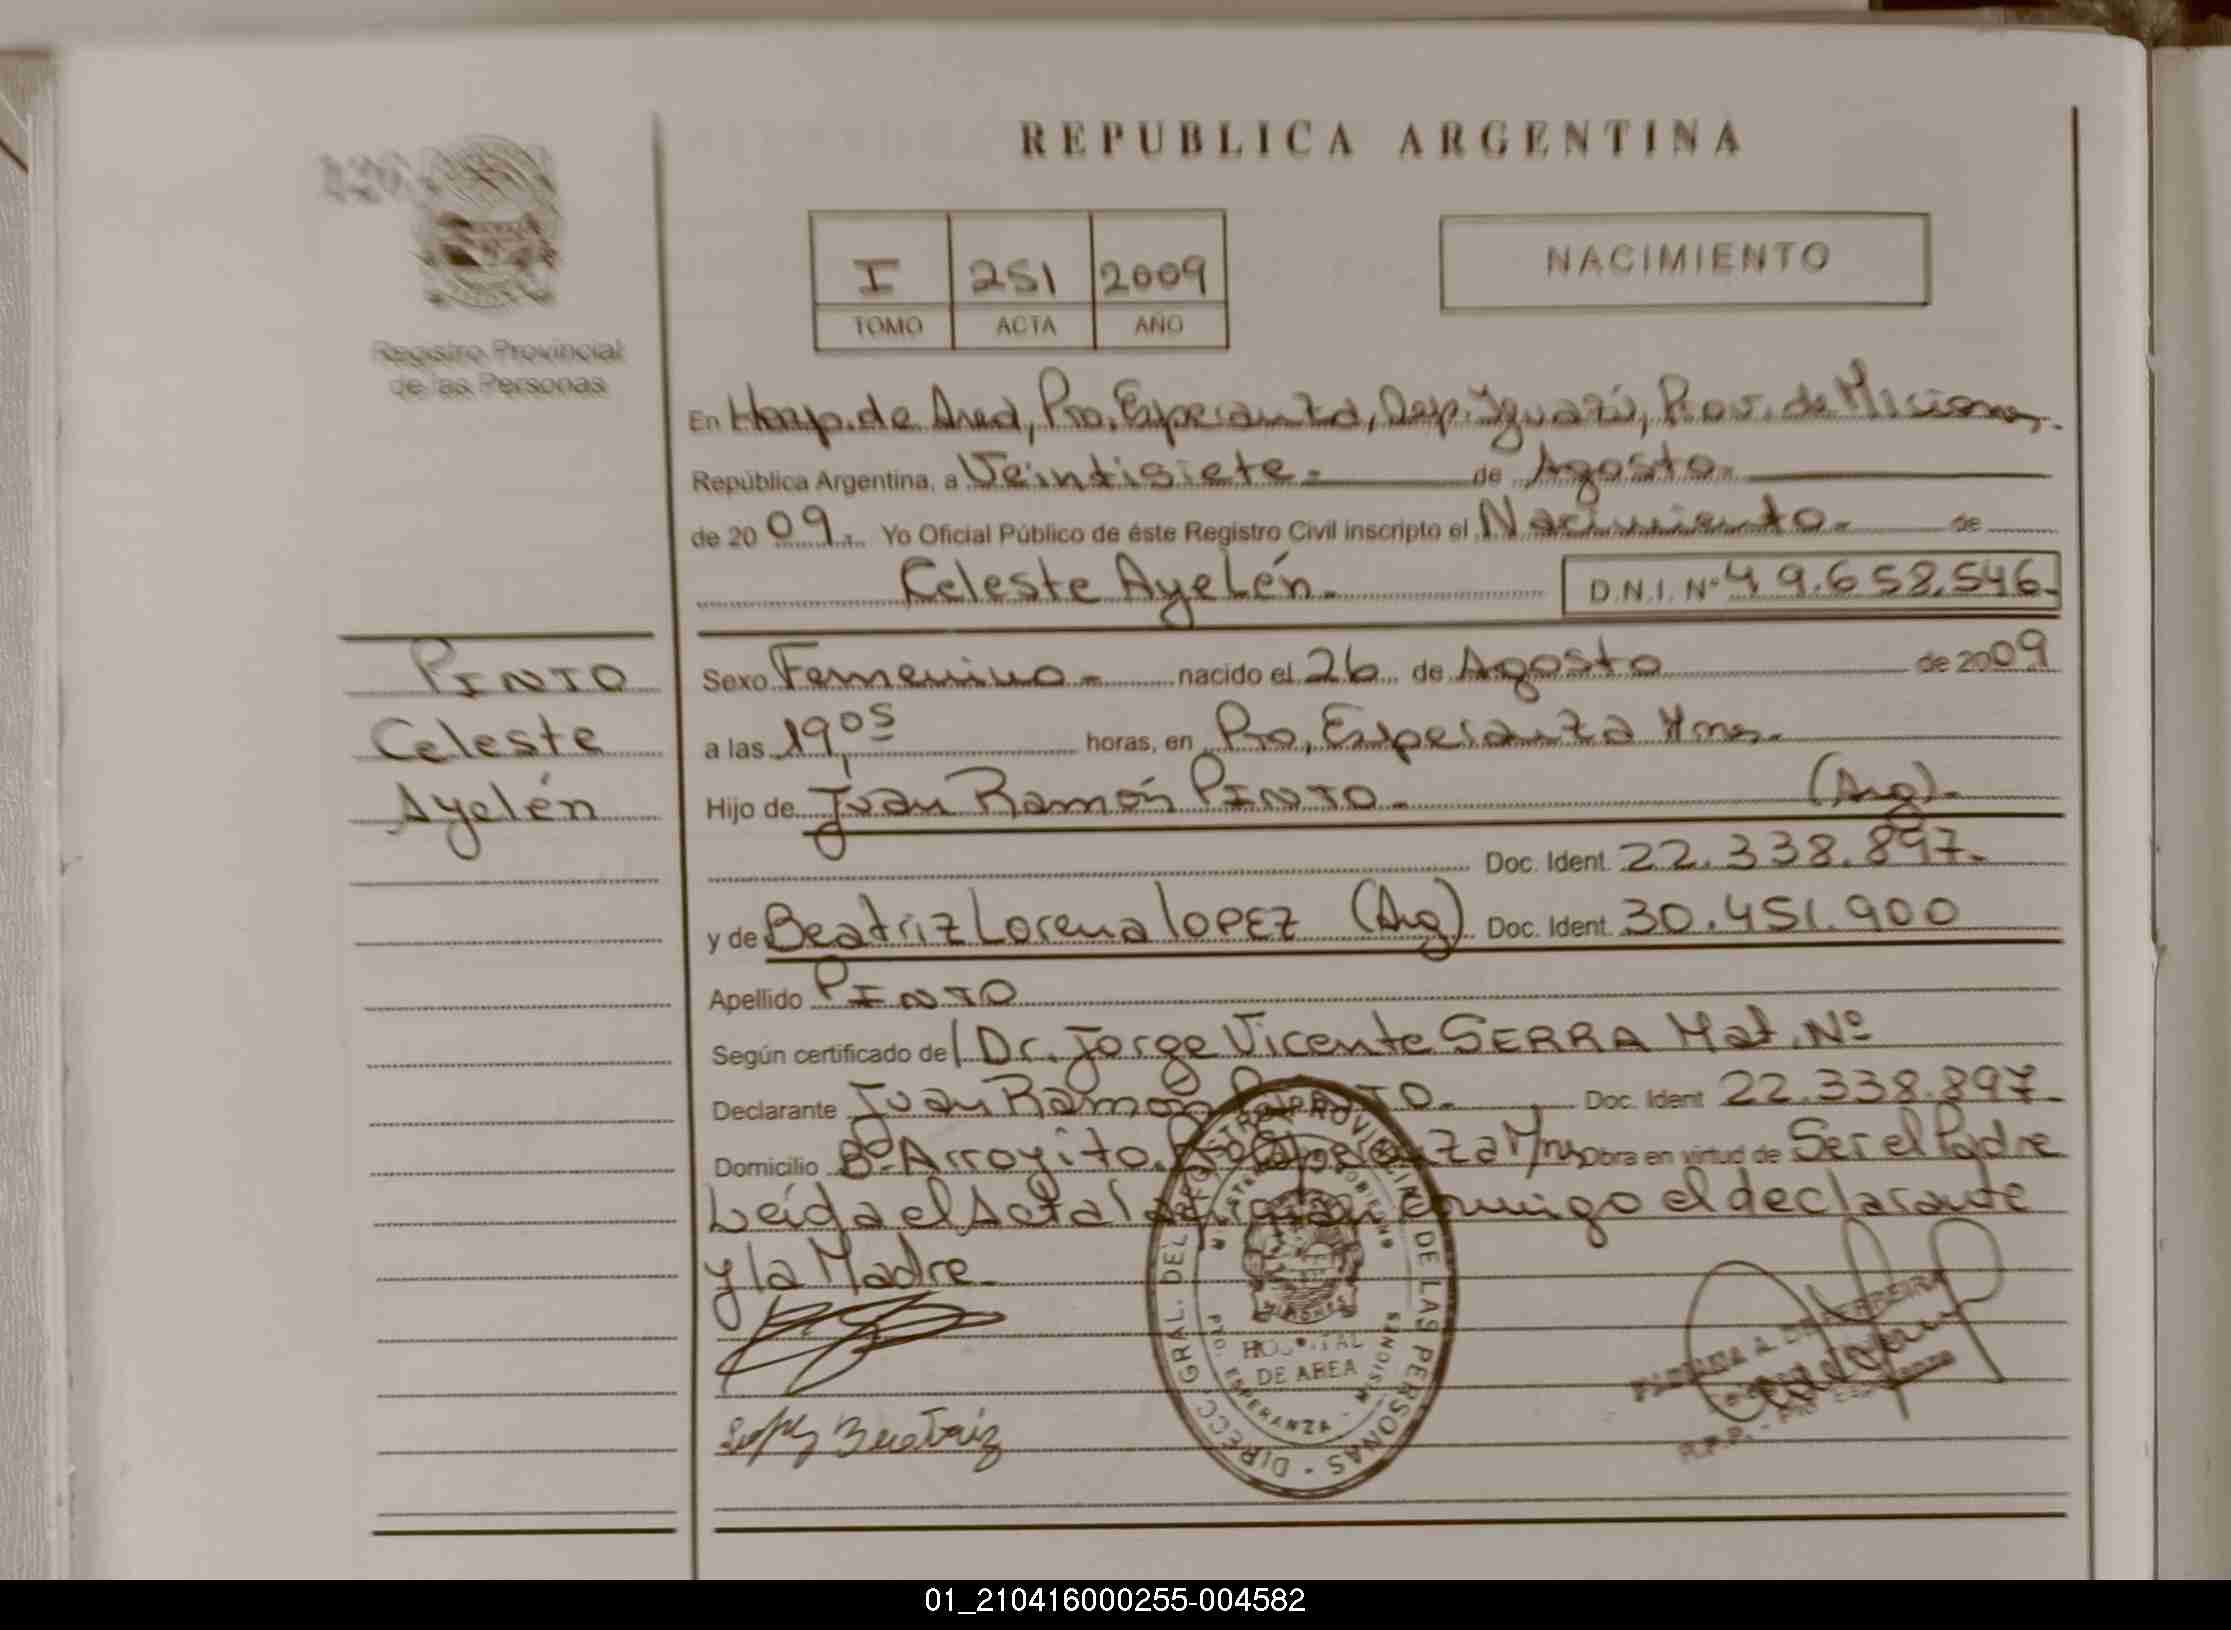 REPUBLICA ARGENTINA
I 251 2009
TOMO ACTA AÑO
NACIMIENTO
Registro Provincial
de las Personas
En Hosp. de Area, Pto. Esperanza, Dep. Iguazú, Prov. de Misiones.
República Argentina, a Veintisiete.- de Agosto.-
de 20 09.- Yo Oficial Público de éste Registro Civil inscripto el Nacimiento.- de
Celeste Ayelén.- D.N.I. Nº 49.658.546.-
PINTO
Celeste
Ayelén
Sexo Femenino.- nacido el 26 de Agosto de 2009
a las 19,05 horas, en Pto, Esperanza Mnes.-
Hijo de Juan Ramón PINTO.- (Arg).-
Doc. Ident. 22.338.897.-
y de Beatriz Lorena LOPEZ (Arg) Doc. Ident. 30.451.900
Apellido PINTO
Según certificado del Dr. Jorge Vicente SERRA Mat. Nº
Declarante Juan Ramón PINTO.- Doc. Ident 22.338.897.-
Domicilio Bº Arroyito. Pto Esperanza Mns Obra en virtud de Ser el Padre
Leída el Acta la firman conmigo el declarante
y la Madre.-
Beatriz
DIRECC. GRAL. DEL REGISTRO PROVINCIAL DE LAS PERSONAS
MINISTERIO GOBIERNO
MISIONES
HOSPITAL
DE AREA
PTO. ESPERANZA - MISIONES
01_210416000255-004582